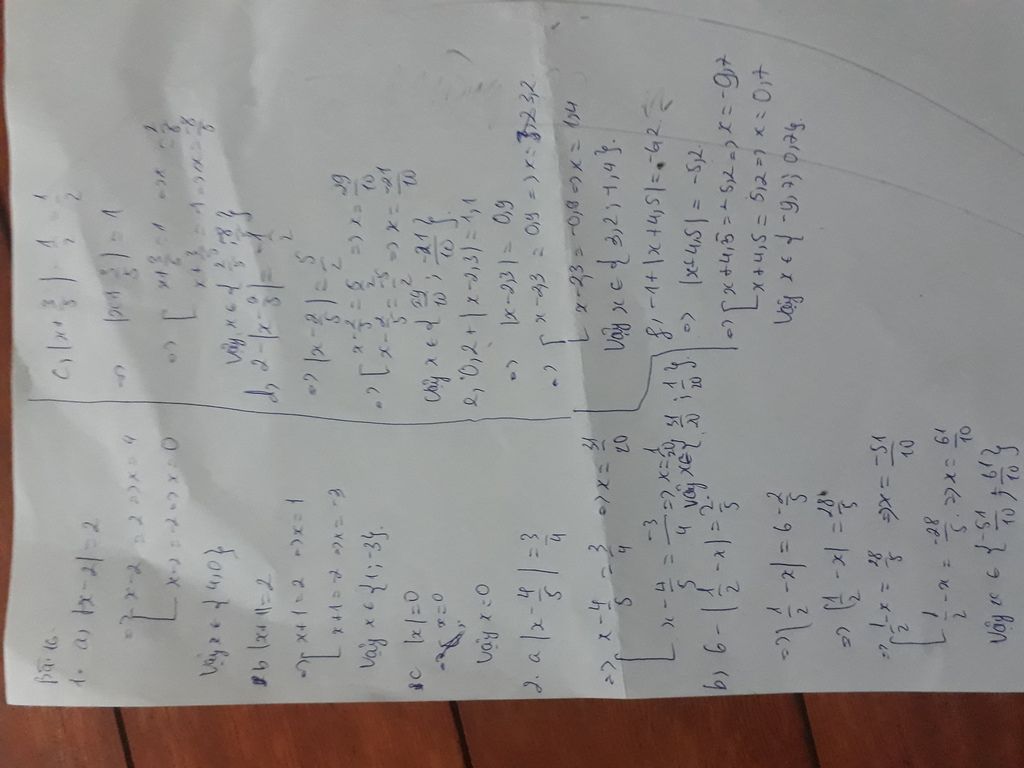 Bài 16.
1. a) |x - 2| = 2
=> [ x - 2 = 2 => x = 4
x - 2 = -2 => x = 0
Vậy x ∈ {4; 0}
b |x + 1| = 2
=> [ x + 1 = 2 => x = 1
x + 1 = -2 => x = -3
Vậy x ∈ {1; -3}.
c |x| = 0
x = 0
Vậy x = 0
2. a |x - 4/5| = 3/4
=> [ x - 4/5 = 3/4 => x = 31/20
x - 4/5 = -3/4 => x = 1/20
Vậy x ∈ {31/20; 1/20}.
b) 6 - |1/2 - x| = 2/5
=> |1/2 - x| = 6 - 2/5
=> |1/2 - x| = 28/5
=> [ 1/2 - x = 28/5 => x = -51/10
1/2 - x = -28/5 => x = 61/10
Vậy x ∈ {-51/10; 61/10}
c, |x + 3/5| - 1/2 = 1/2
=> |x + 3/5| = 1
=> [ x + 3/5 = 1 => x = 2/5
x + 3/5 = -1 => x = -8/5
Vậy x ∈ {2/5; -8/5}
d, 2 - |x - 2/5| = -1/2
=> |x - 2/5| = 5/2
=> [ x - 2/5 = 5/2 => x = 29/10
x - 2/5 = -5/2 => x = -21/10
Vậy x ∈ {29/10; -21/10}.
e, 0,2 + |x - 2,3| = 1,1
=> |x - 2,3| = 0,9
=> [ x - 2,3 = 0,9 => x = 3,2
x - 2,3 = -0,9 => x = 1,4
Vậy x ∈ {3,2; 1,4}.
g, -1 + |x + 4,5| = -6,2
=> |x + 4,5| = -5,2
=> [ x + 4,5 = -5,2 => x = -9,7
x + 4,5 = 5,2 => x = 0,7
Vậy x ∈ {-9,7; 0,7}.